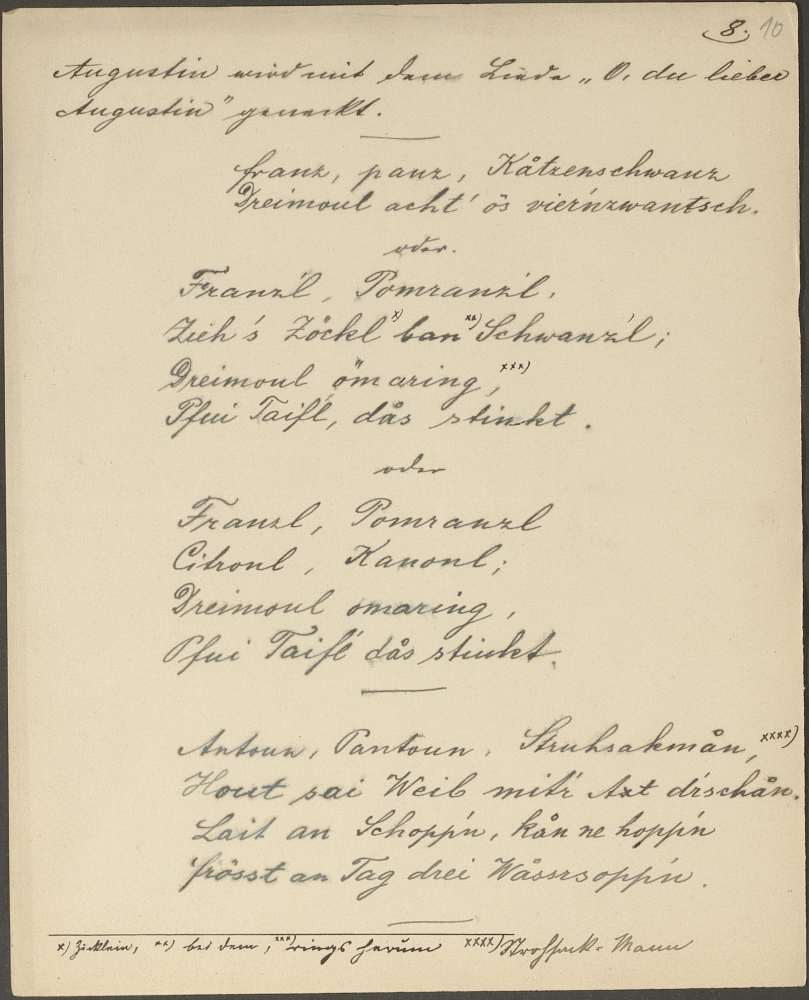 8. 10
Augustin wird mit dem Liede „O, du lieber
Augustin" geneckt.
Franz, panz, Kåtzenschwanz
Dreimoul acht' ös vier'nzwantsch.
oder.
Franz'l, Pomranz'l,
Zieh's Zöckl x) ban xx) Schwanz'l;
Dreimoul ömaring, xxx)
Pfui Taifl, dås stinkt.
oder
Franzl, Pomranzl
Citronl, Kanonl;
Dreimoul omaring,
Pfui Taifl' dås stinkt.
Antoun, Pantoun, Struhsakmån, xxxx)
Hout sai Weib mit'r Axt d'rschån.
Lait an Schopp'n, kån ne hopp'n
frösst an Tag drei Wåssrsopp'n.
x) Zicklein, xx) bei dem, xxx) rings herum xxxx) Strohsack-Mann